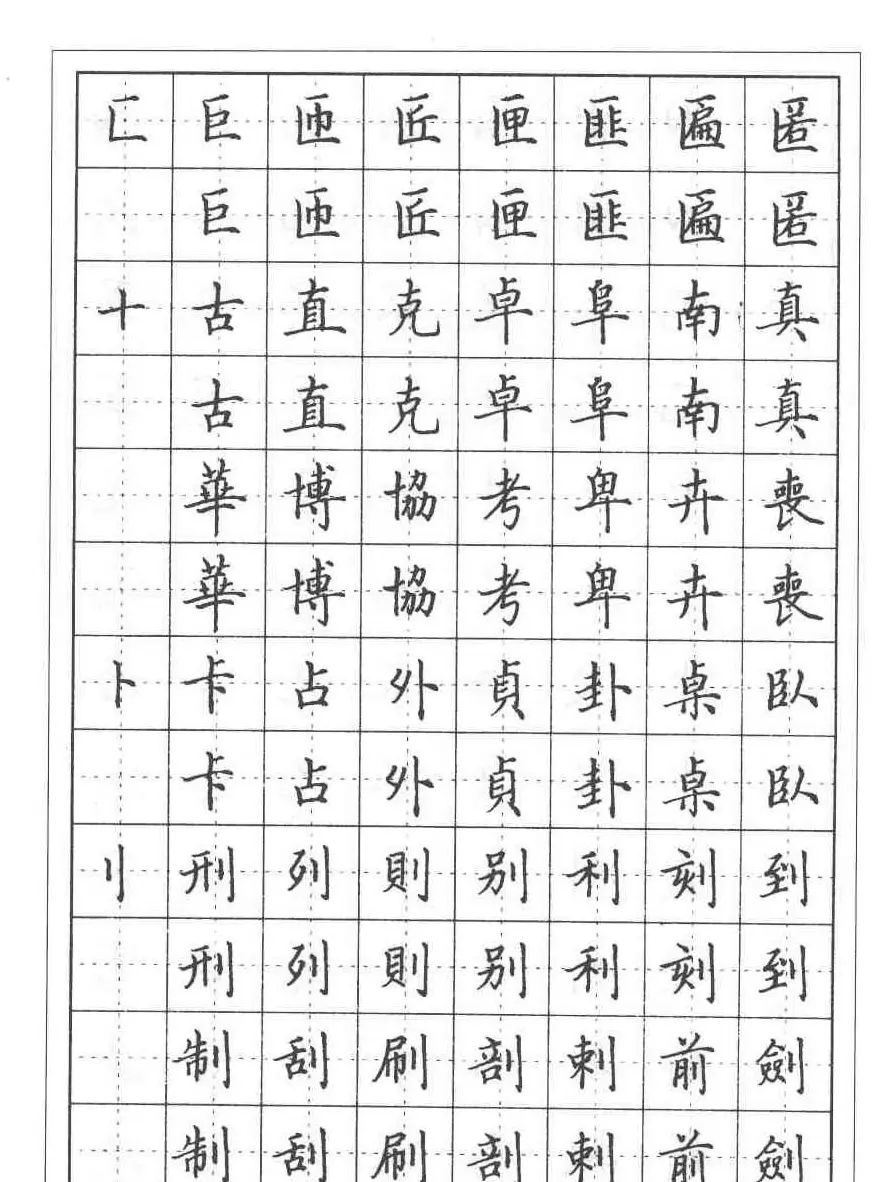 匚 巨 匝 匠 匣 匪 匾 匿
巨 匝 匠 匣 匪 匾 匿
十 古 直 克 卓 阜 南 真
古 直 克 卓 阜 南 真
華 博 協 考 卑 卉 喪
華 博 協 考 卑 卉 喪
卜 卡 占 外 貞 卦 桌 臥
卡 占 外 貞 卦 桌 臥
刂 刑 列 則 別 利 刻 到
刑 列 則 別 利 刻 到
制 刮 刷 剖 刺 前 劍
制 刮 刷 剖 刺 前 劍